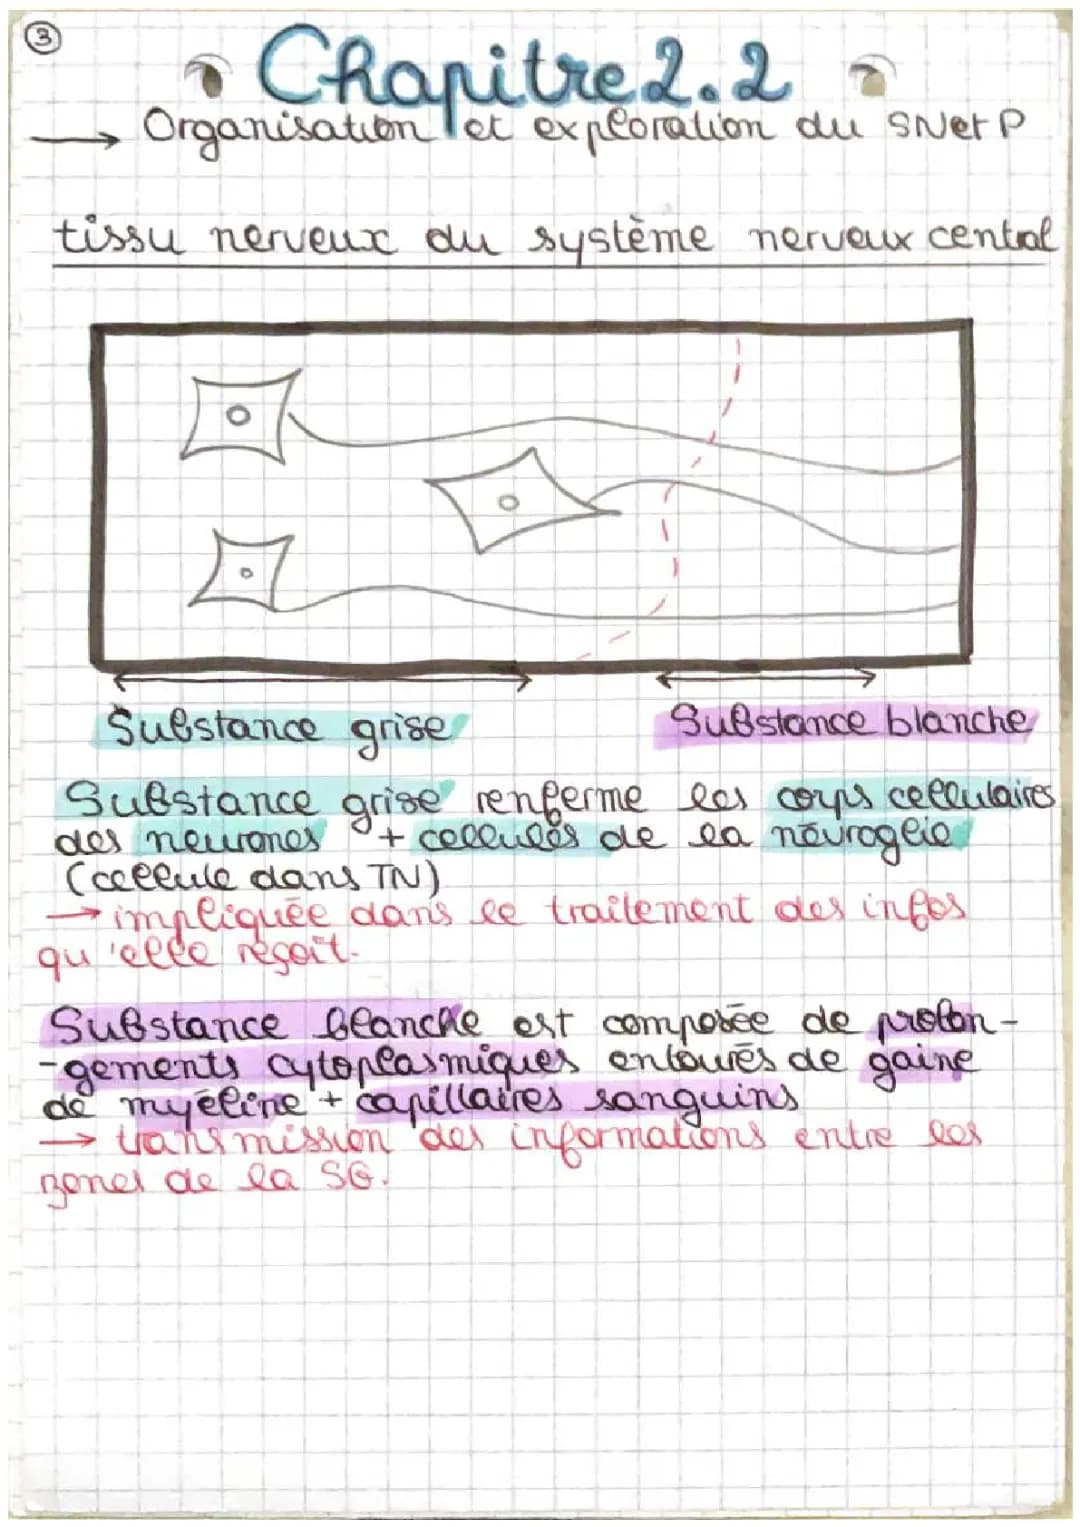 3
Chapitre 2.2
→ Organisation et exploration du SNet P
tissu nerveux du système nerveux central
Substance grise
Substance blanche
Substance grise renferme les corps cellulaires
des neurones + cellules de la névroglie
(cellule dans TN)
→ impliquée dans le traitement des infos
qu'elle reçoit.
Substance blanche est composée de prolon-
-gements cytoplasmiques entourés de gaine
de myéline + capillaires sanguins
→ transmission des informations entre les
zones de la SG.